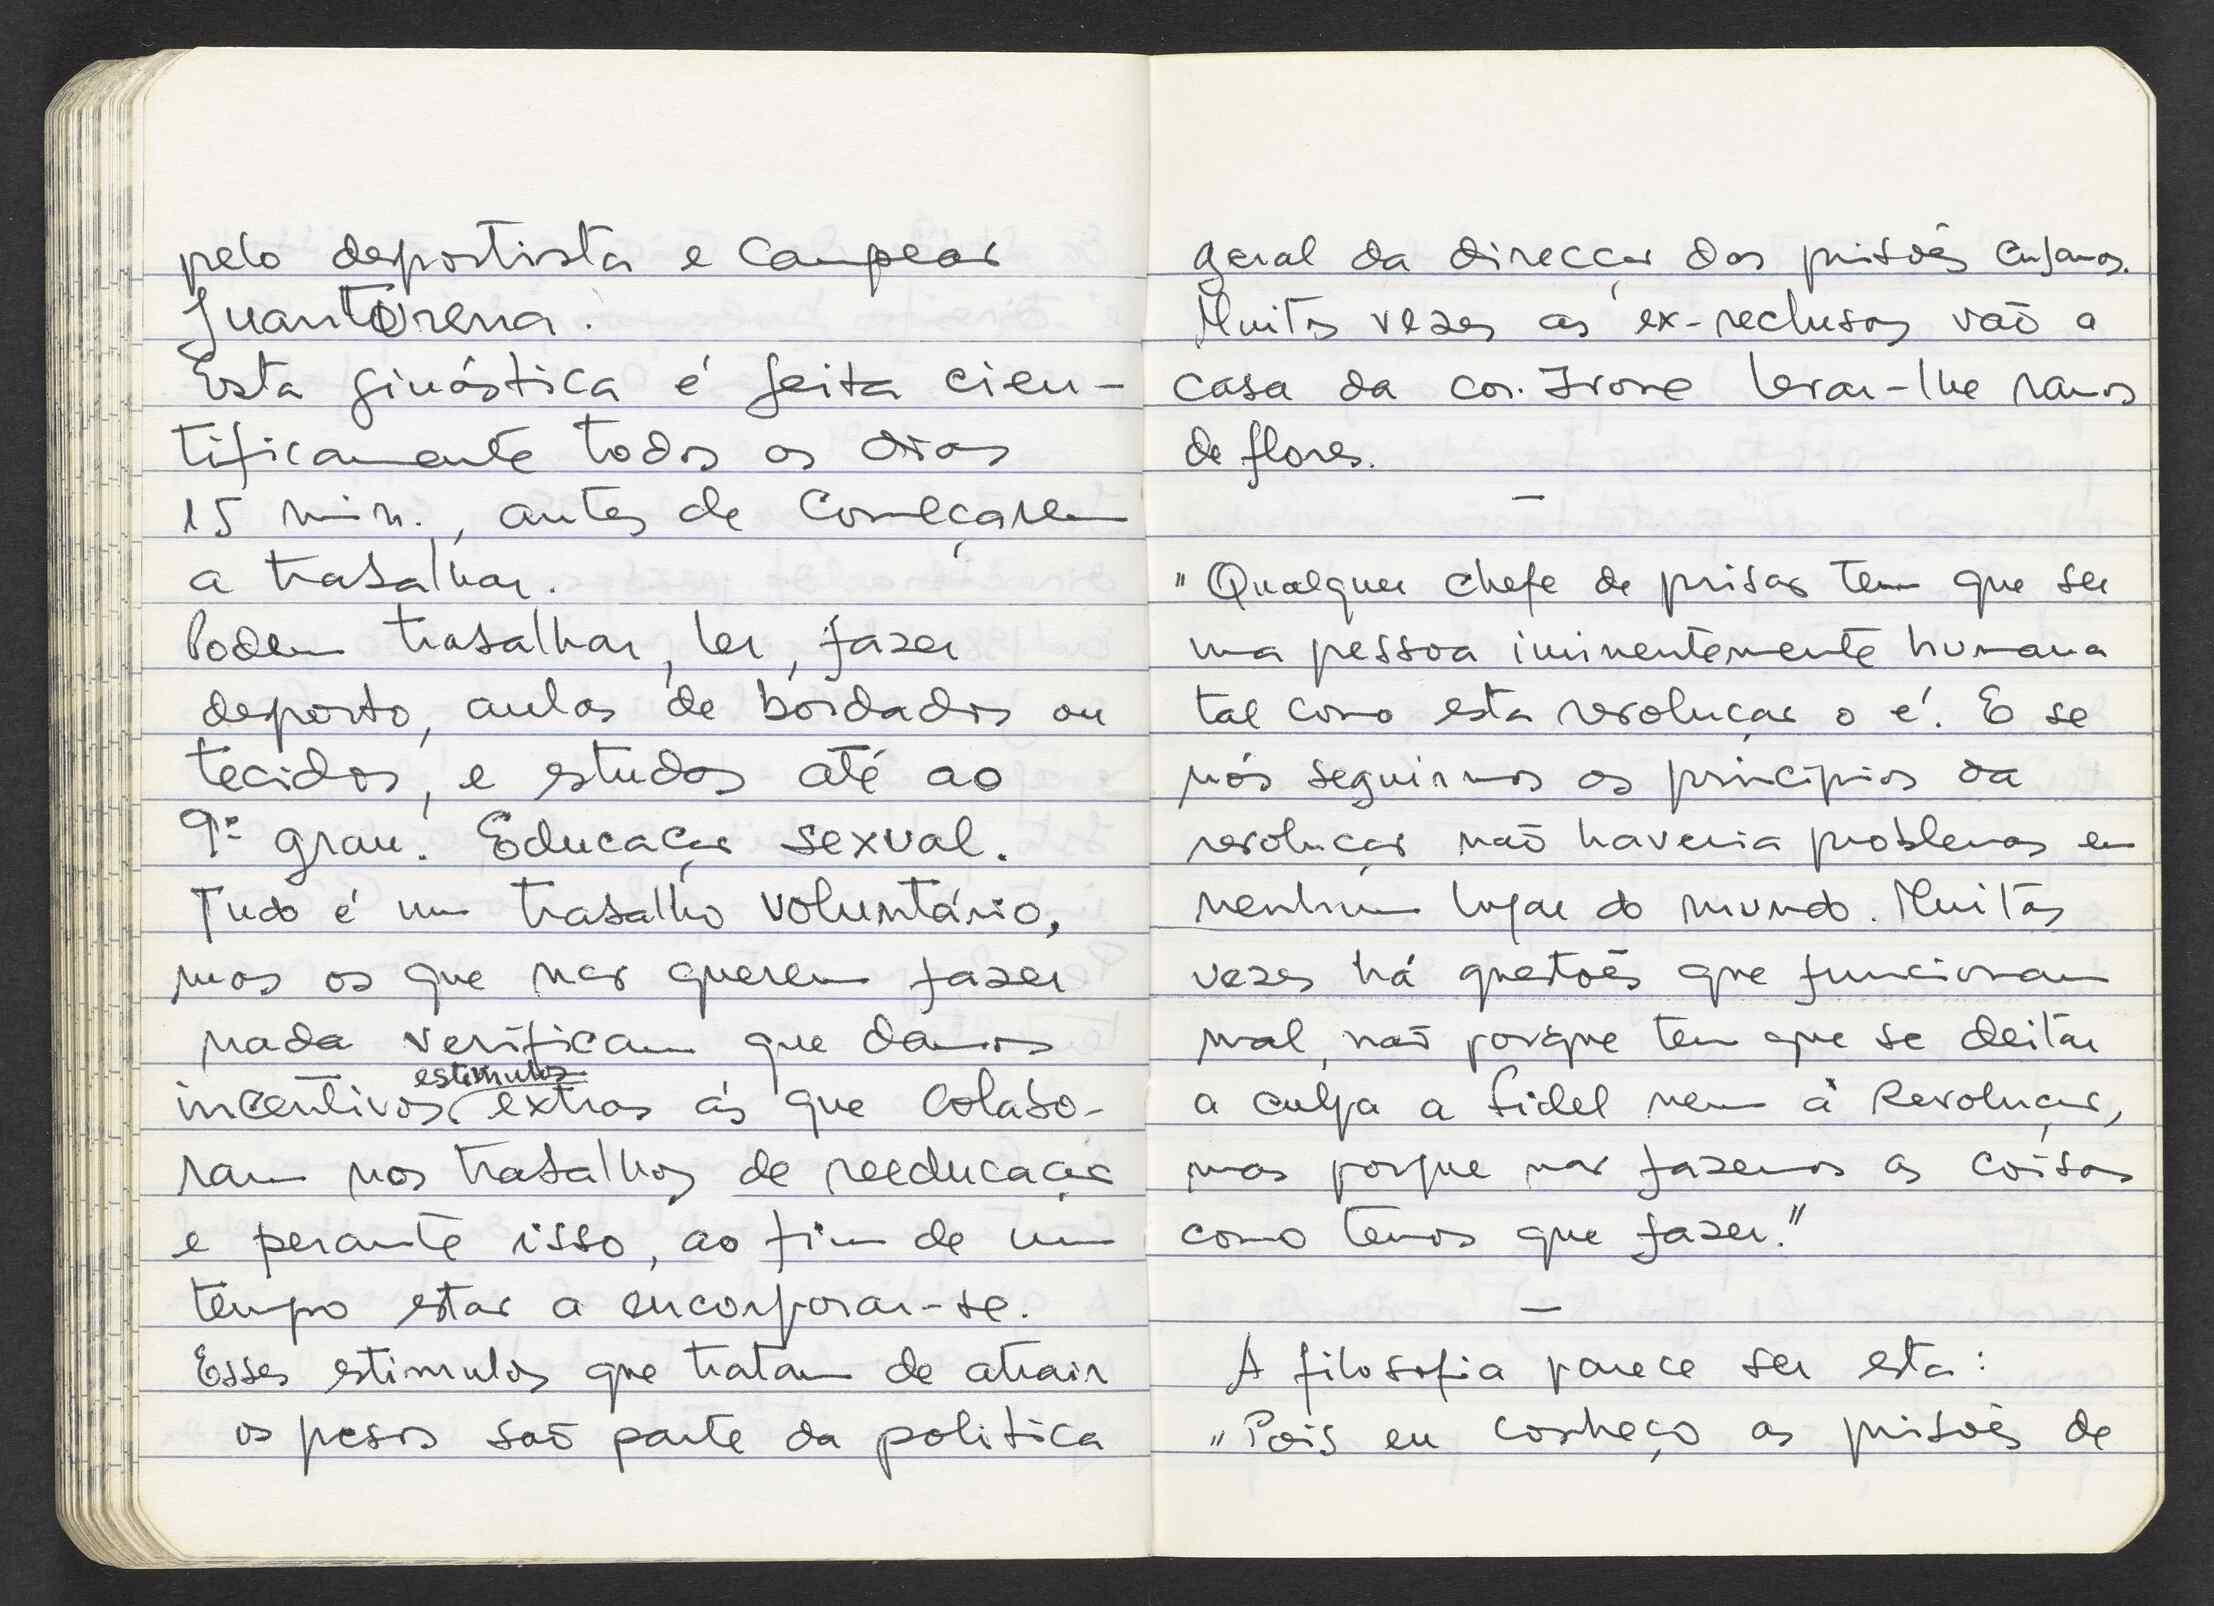 pelo desportista e campeão
Juantorena.
Esta ginástica é feita cien-
tificamente todos os dias
15 min., antes de começarem
a trabalhar.
Podem trabalhar, ler, fazer
desporto, aulas de bordados ou
tecidos, e estudos até ao
9º grau. Educação sexual.
Tudo é um trabalho voluntário,
mas os que não querem fazer
nada verificam que damos
estimulos
incentivos extras ás que colabo-
ram nos trabalhos de reeducação
e perante isso, ao fim de um
tempo estão a encorporar-se.
Esses estimulos que tratam de atrair
os presos são parte da politica
geral da direcção das prisões cubanas.
Muitas vezes as ex-reclusas vão a
casa da cor. Ivone levar-lhe ramos
de flores.
—
"Qualquer chefe de prisão tem que ser
uma pessoa iminentemente humana
tal como esta revolução o é. E se
nós seguirmos os princípios da
revolução não haveria problemas em
nenhum lugar do mundo. Muitas
vezes há questões que funcionam
mal, não porque tem que se deitar
a culpa a Fidel nem à Revolução,
mas porque não fazemos as coisas
como temos que fazer."
—
A filosofia parece ser esta:
"Pois eu conheço as prisões de